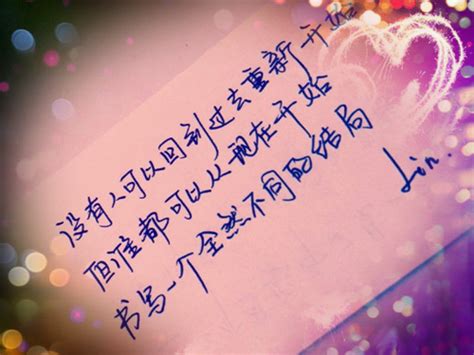 没有人可以回到过去重新开始
但谁都可以从现在开始
书写一个全然不同的结局
Lin.